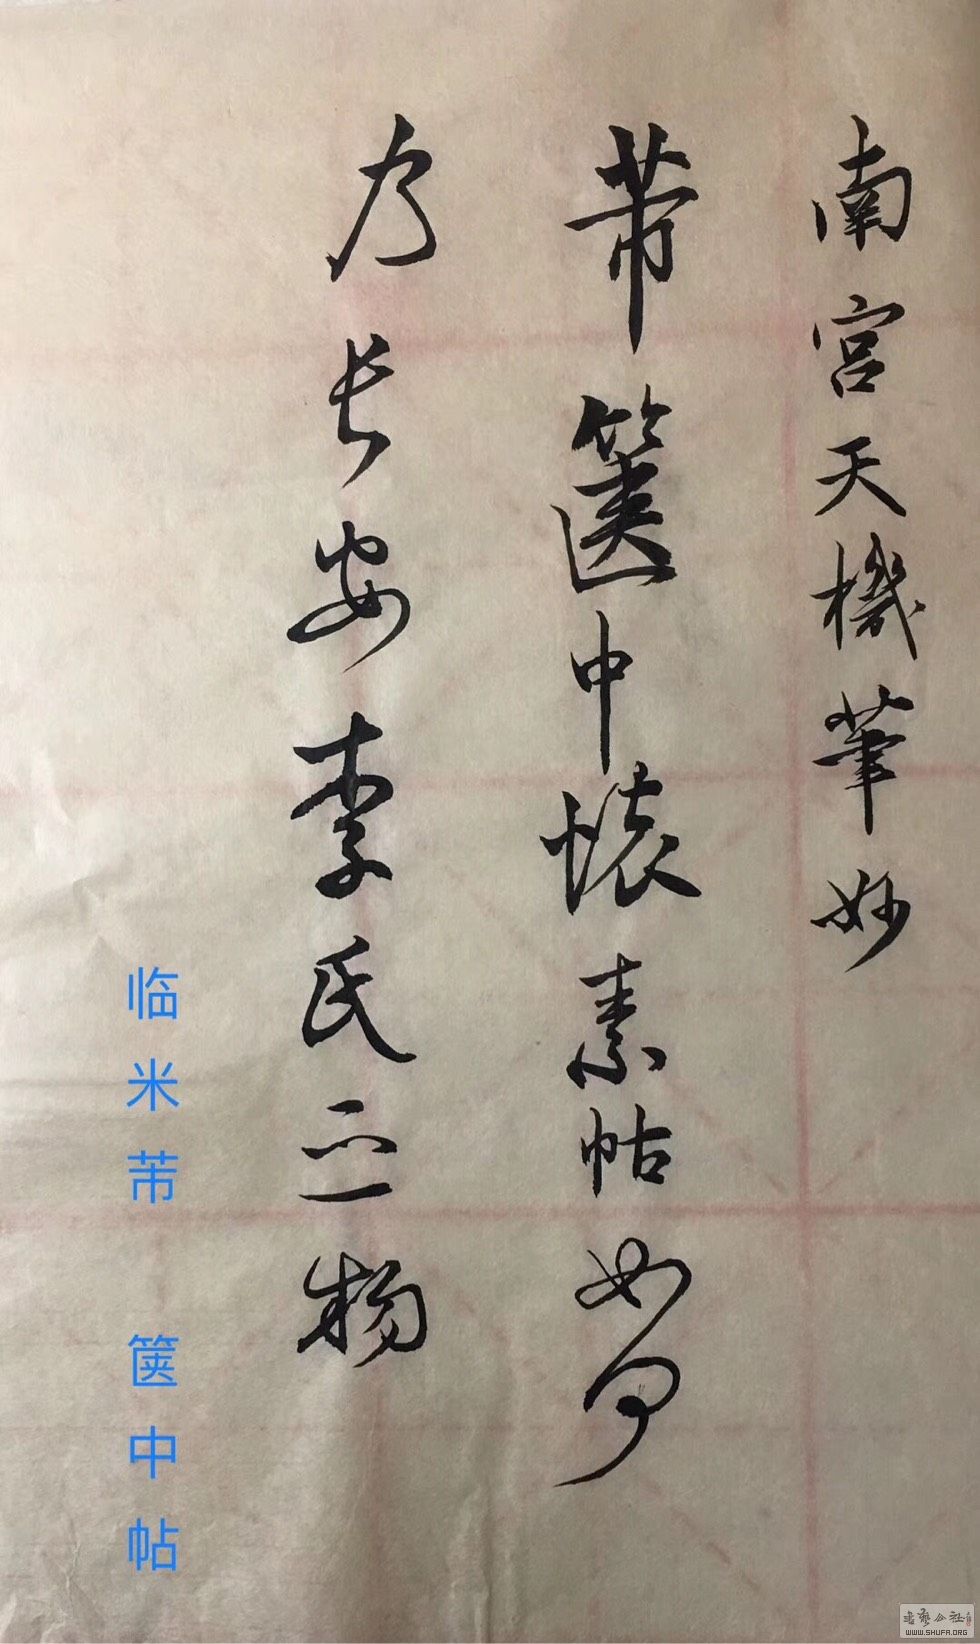 南宮天機筆妙
芾篋中懷素帖如何
乃長安李氏之物
临米芾 箧中帖
書藝公社
WWW.SHUFA.ORG